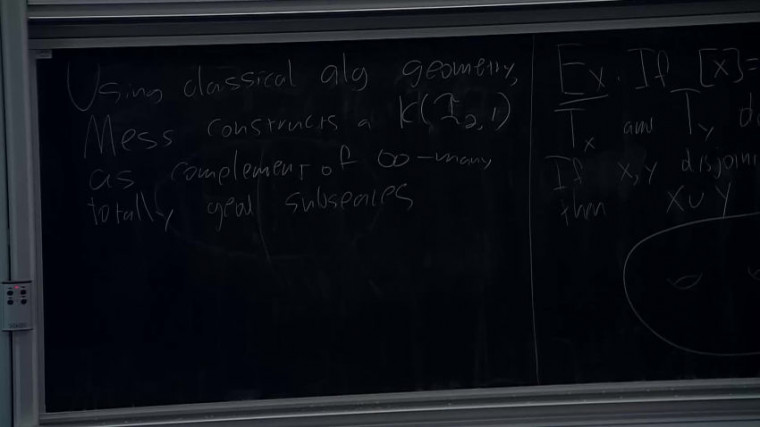 Using classical alg geometry,
Mess constructs a K(I_2,1)
as complement of ∞-many
totally geod subspaces
Ex. If [x]=
T_x and T_y d
If x,y disjoin
then X∪Y